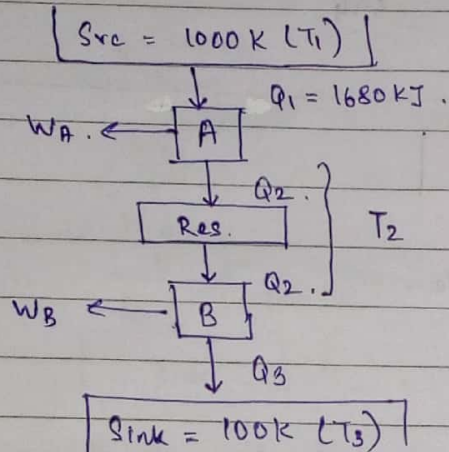 Src = 1000 K (T1)
Q1 = 1680 KJ.
WA.
A
Q2.
Res.
T2
Q2.
WB
B
Q3
Sink = 100K (T3)